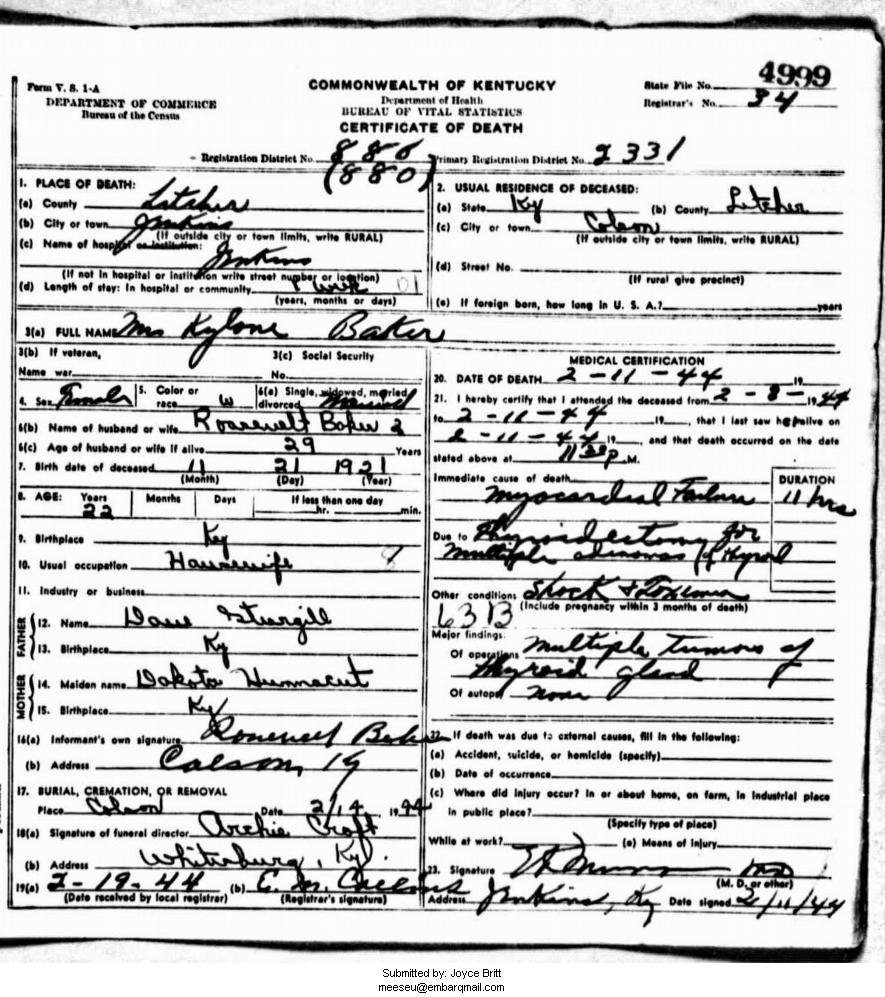 4999
Form V. S. 1-A
DEPARTMENT OF COMMERCE
Bureau of the Census
COMMONWEALTH OF KENTUCKY
Department of Health
BUREAU OF VITAL STATISTICS
CERTIFICATE OF DEATH
State File No.
Registrar's No. 34
Registration District No. 880 Primary Registration District No. 2331
(880)
1. PLACE OF DEATH:
(a) County Letcher
(b) City or town Jenkins
(If outside city or town limits, write RURAL)
(c) Name of hospital or institution:
Jenkins
(If not in hospital or institution write street number or location)
(d) Length of stay: In hospital or community 1 week 01
(years, months or days)
2. USUAL RESIDENCE OF DECEASED:
(a) State Ky (b) County Letcher
(c) City or town Colson
(If outside city or town limits, write RURAL)
(d) Street No.
(If rural give precinct)
(e) If foreign born, how long in U. S. A.? years
3(a) FULL NAME Mrs Kylone Baker
3(b) If veteran,
Name war
3(c) Social Security
No.
4. Sex Female 5. Color or race W 6(a) Single, widowed, married divorced Married
6(b) Name of husband or wife Roosevelt Baker
6(c) Age of husband or wife if alive 29 Years
7. Birth date of deceased 11 21 1921
(Month) (Day) (Year)
8. AGE: Years 22 Months Days If less than one day
hr. min.
9. Birthplace Ky
10. Usual occupation Housewife 8
11. Industry or business
FATHER
12. Name Dave Sturgill
13. Birthplace Ky
MOTHER
14. Maiden name Dakota Hunnacut
15. Birthplace Ky
16(a) Informant's own signature Roosevelt Baker
(b) Address Colson, Ky
17. BURIAL, CREMATION, OR REMOVAL
Place Colson Date 2/14, 1944
18(a) Signature of funeral director Archie Craft
(b) Address Whitesburg, Ky.
19(a) 2-19-44 (b) E. M. Collins
(Date received by local registrar) (Registrar's signature)
MEDICAL CERTIFICATION
20. DATE OF DEATH 2-11-44 19
21. I hereby certify that I attended the deceased from 2-8-1944
to 2-11-44 19, that I last saw her alive on
2-11-44 19, and that death occurred on the date
stated above at 11 30 P.M.
Immediate cause of death DURATION
Myocardial Failure 11 hrs
Due to Thyroidectomy for
Multiple adenomas of thyroid
Other conditions Shock & Toxemia
(Include pregnancy within 3 months of death)
63B
Major findings:
Of operations Multiple Tumors of
Thyroid gland
Of autopsy none
22. If death was due to external causes, fill in the following:
(a) Accident, suicide, or homicide (specify)
(b) Date of occurrence
(c) Where did injury occur? In or about home, on farm, in industrial place
in public place?
(Specify type of place)
While at work? (e) Means of injury
23. Signature MD
(M. D. or other)
Address Jenkins, Ky Date signed 2/11/44
Submitted by: Joyce Britt
meeseu@embarqmail.com